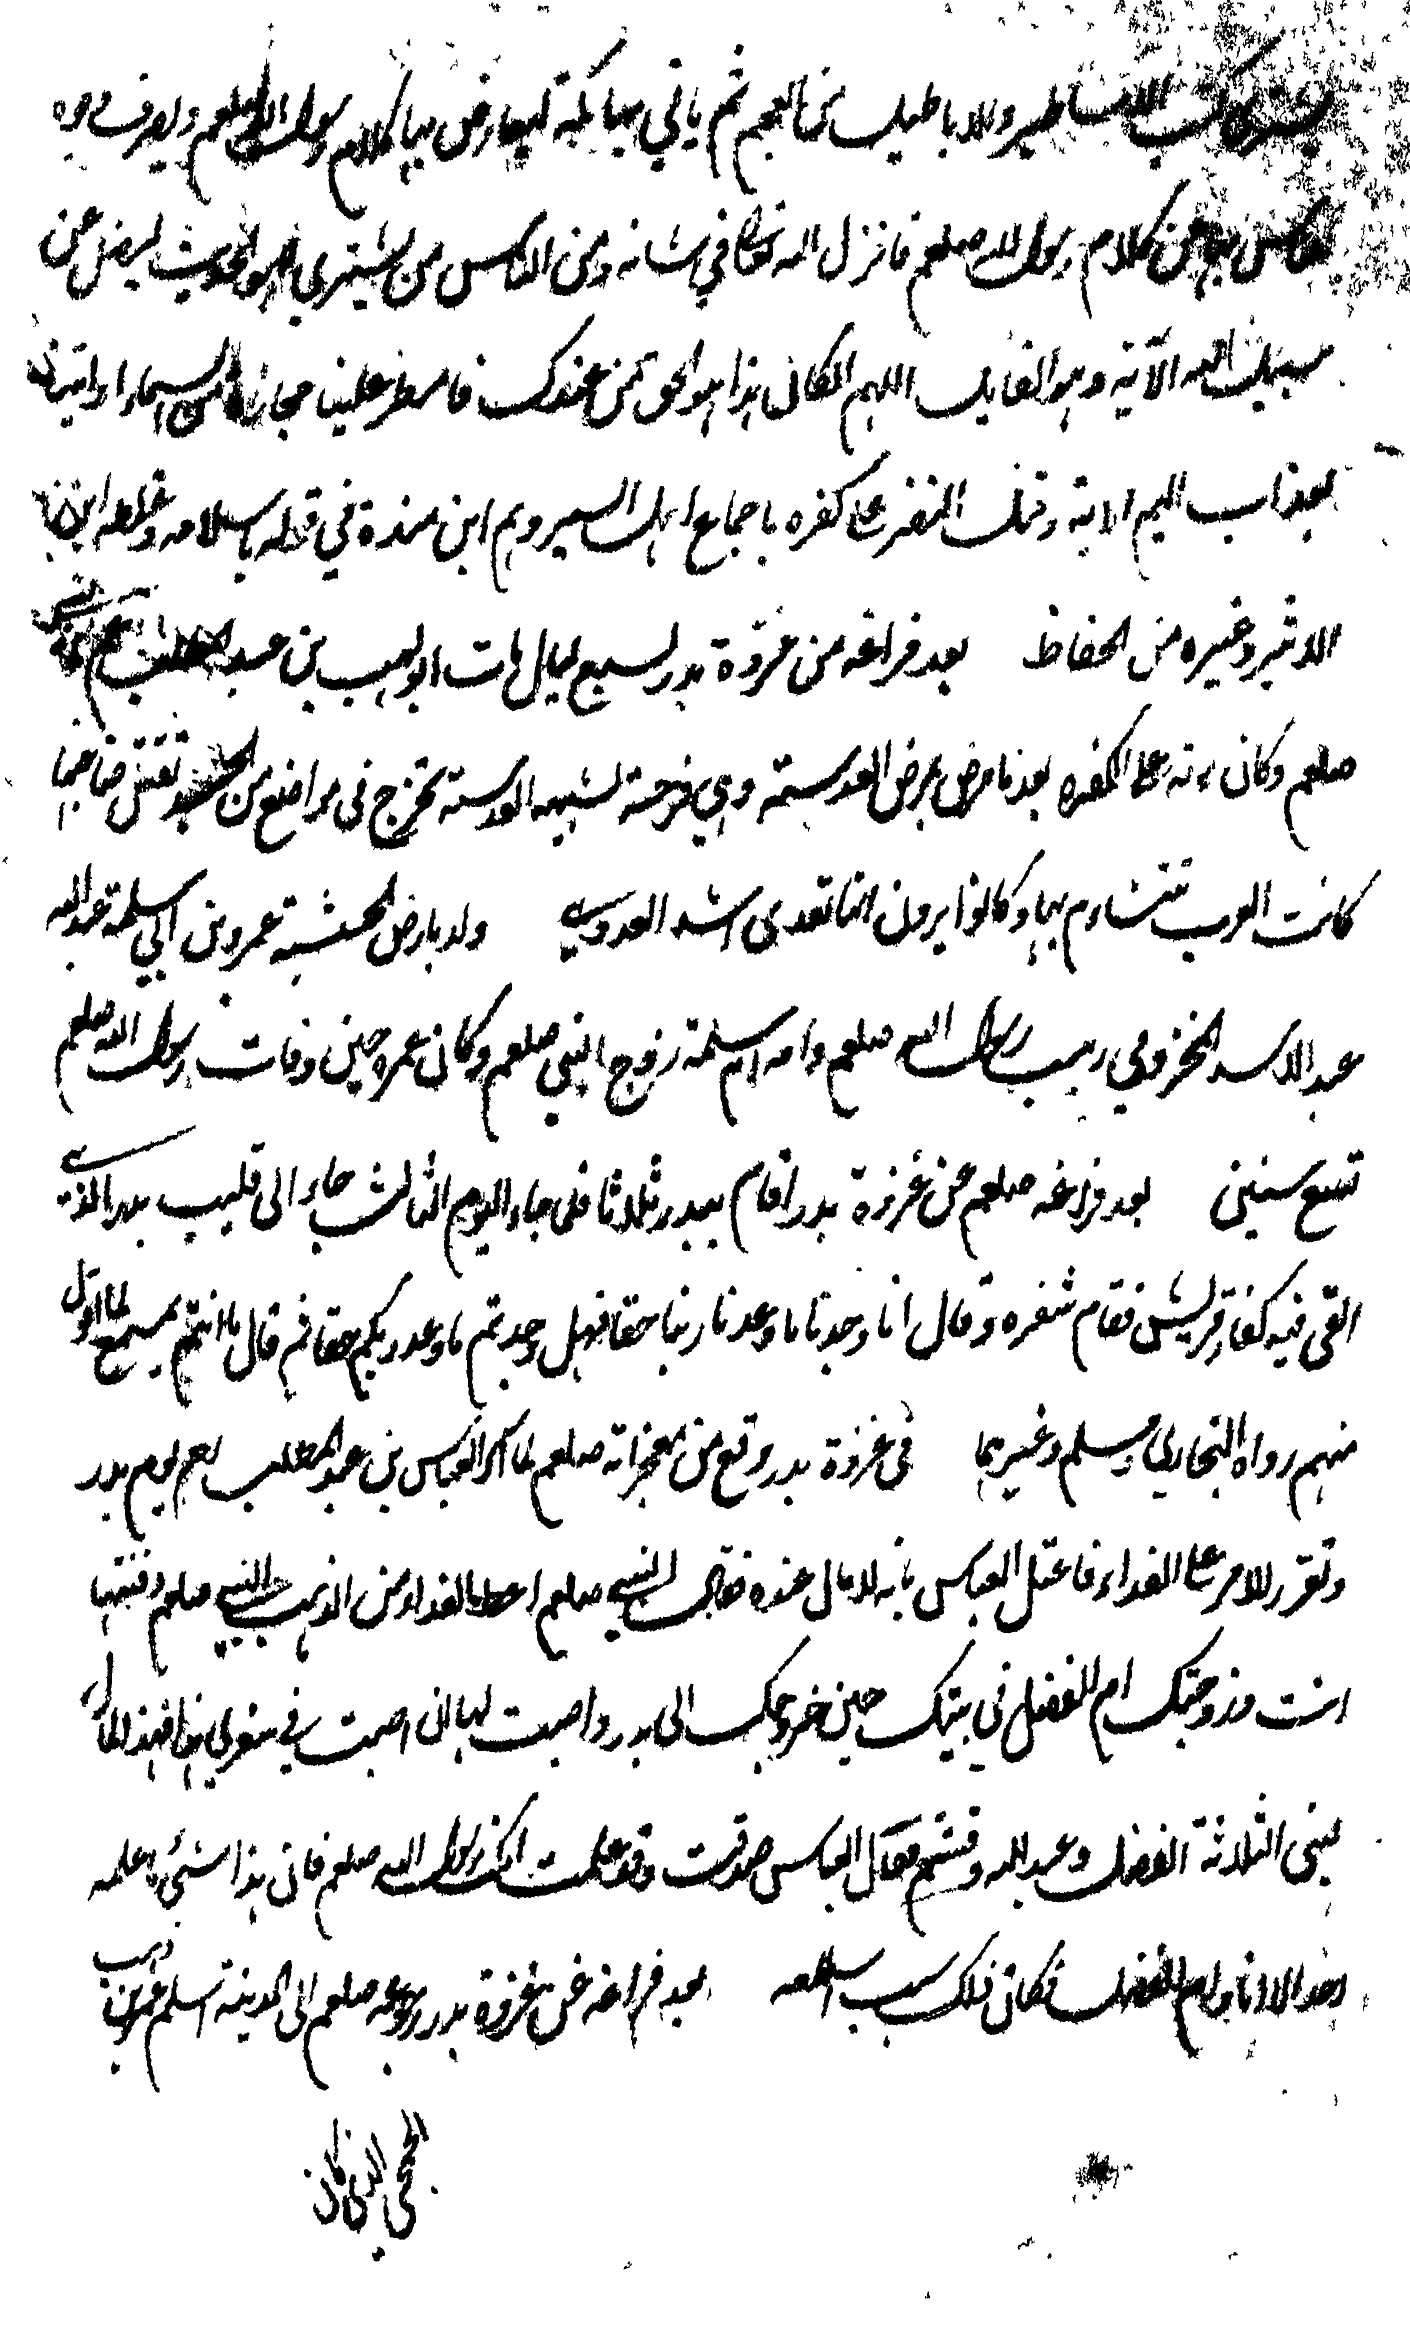 يشترى كتب الاساطير والاباطيل من العجم ثم ياتي بها مكة ليعارض بها كلام رسول الله صلعم ويصرف وجوه
الناس بها عن كلام رسول الله صلعم فانزل الله تعالى في شانه ومن الناس من يشتري لهو الحديث ليضل عن
سبيل الله الآية وهو القايل اللهم ان كان هذا هو الحق من عندك فامطر علينا حجارة من السماء او ائتنا
بعذاب اليم الاية وقتل النضر على كفره باجماع اهل السير وهم ابن مندة في قوله باسلامه وغلطه ابن
الاثير وغيره من الحفاظ بعد فراغه من غزوة بدر لسبع ليال مات ابو لهب بن عبد المطلب عم النبي
صلعم وكان موته على الكفر بعد ما مرض بمرض العدسة وهي قرحة تشبه العدسة تخرج في مواضع من الجسد تقتل صاحبها
كانت العرب تتشاوم بها وكانوا يرون انها تعدى اشد العدوى ولد بارض الحبشة عمرو بن ابي سلمة عبد الله
عبد الاسد المخزومي ربيب رسول الله صلعم وامه ام سلمة زوج النبي صلعم وكان عمره حين وفات رسول الله صلعم
تسع سنين بعد فراغه صلعم من غزوة بدر اقام ببدر ثلاثا فلما جاء اليوم الثالث جاء الى قليب بدر الذي
القى فيه كفار قريش فقام شفره وقال انا وجدنا ما وعدنا ربنا حقا فهل وجدتم ما وعد ربكم حقا ثم قال ما انتم باسمع لما اقول
منهم رواه البخاري ومسلم وغيرهما في غزوة بدر وقع من معجزاته صلعم لما اسر العباس بن عبد المطلب يوم بدر
وتقرر الامر على الفداء فاعتل العباس بانه لا مال عنده فقال النبي صلعم اعط الفداء من الذهب التي دفنتها
انت وزوجتك ام الفضل في بيتك حين خروجك الى بدر واصيت لها ان اصبت في سفري هذا فهذا المال
لبني الثلاثة الفضل وعبد الله وقثم فقال العباس صدقت وقد علمت انك رسول الله صلعم فان هذا شيء ما علمه
احد الا انا وام الفضل فكان ذلك سبب اسلامه بعد فراغه من غزوة بدر ورجوعه صلعم الى المدينة اسلم عمير بن وهب
الجمحي الذي كان